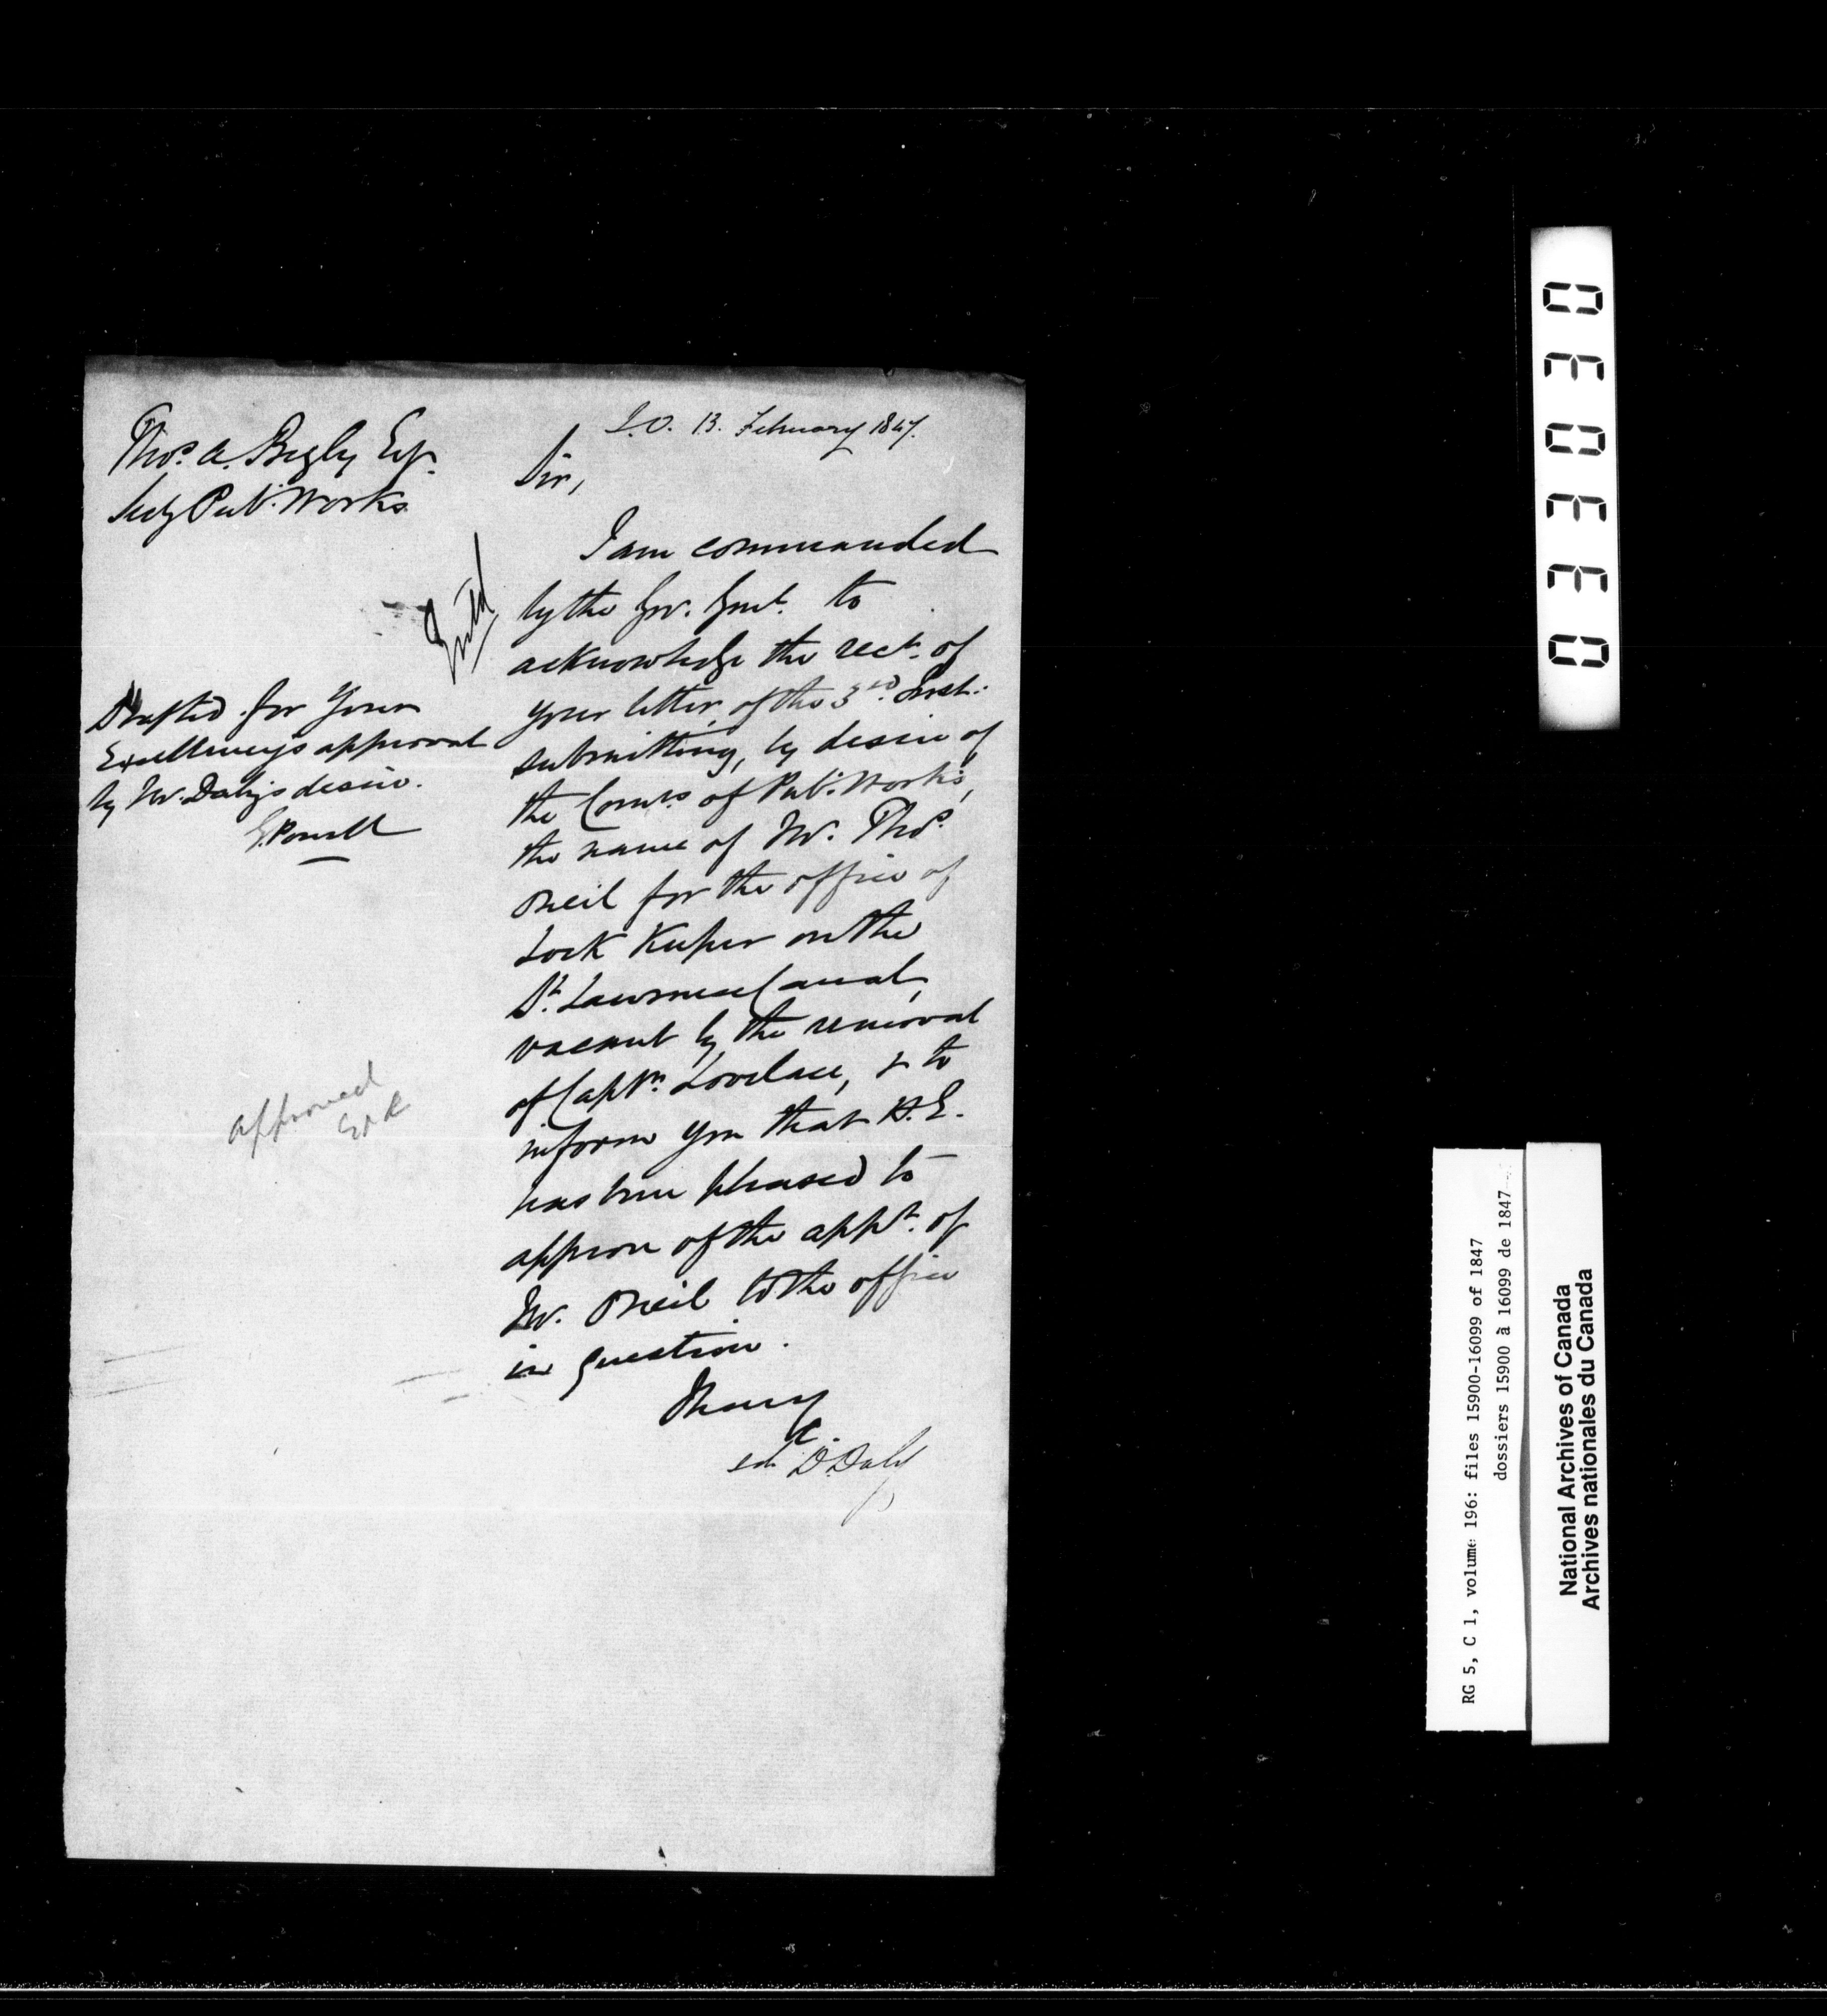 Thos. A. Begly Esqr.
Secy Pub. Works
S.O. 13. February 1847.
Sir,
I am commanded
by the Gov. Genl. to
acknowledge the rect. of
your letter, of the 3rd. Inst.
submitting, by desire of
the Comrs of Pub. Works,
the name of Mr. Thos.
ONeil for the office of
Lock Keeper on the
St. Lawrence Canal,
vacant by the removal
of Captn. Lovelace, & to
inform you that H.E.
has been pleased to
approve of the appt. of
Mr. ONeil to the office
in question.
I have &c
sd D. Daly
Entd
Drafted for Your
Excellency's approval
by Mr. Daly's desire.
G. Powell
approved
E&K
03030
RG 5, C 1, volume 196: files 15900-16099 of 1847
dossiers 15900 à 16099 de 1847
National Archives of Canada
Archives nationales du Canada